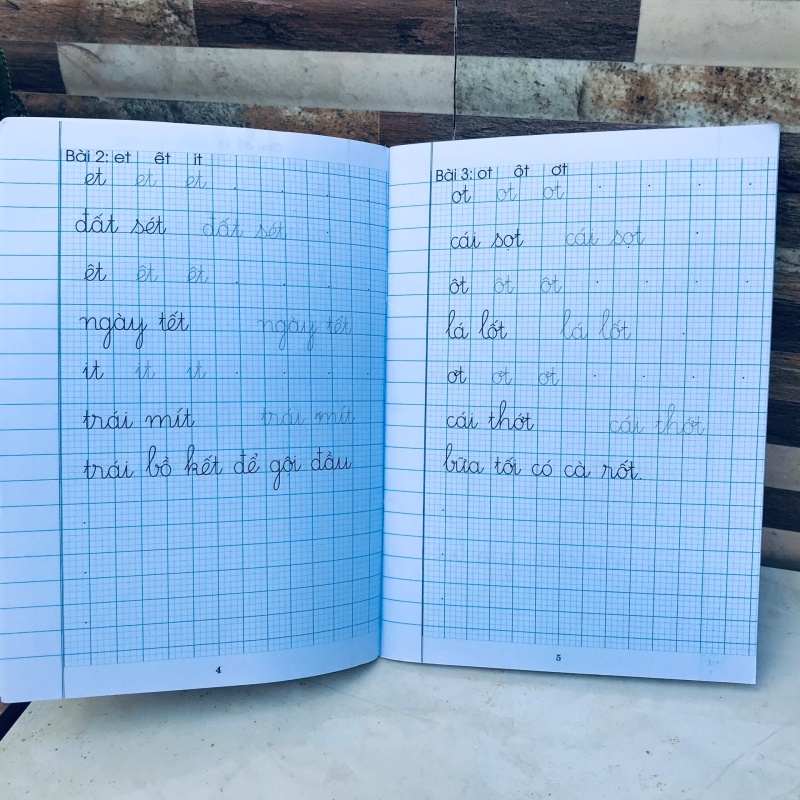 Bài 2: et êt it
et et et
đất sét đất sét
êt êt êt
ngày tết ngày tết
it it it
trái mít trái mít
trái bồ kết để gội đầu
4
Bài 3: ot ôt ơt
ot ot ot
cái sọt cái sọt
ôt ôt ôt
lá lốt lá lốt
ơt ơt ơt
cái thớt cái thớt
bữa tối có cà rốt.
5